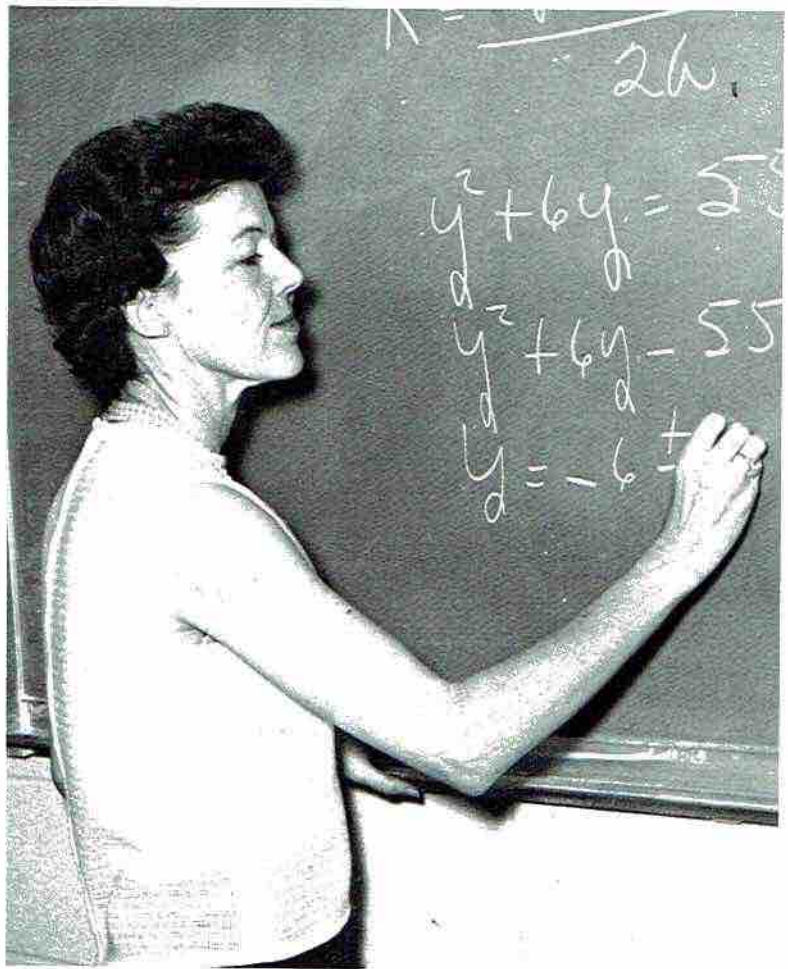 2a
y² + 6y = 55
y² + 6y - 55
y = - 6 ±